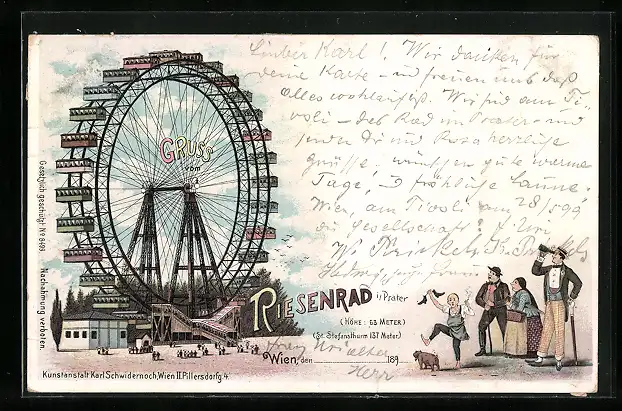 Lieber Karl! Wir danken für
deine Karte - und freuen uns daß
alles wohlauf ist. Wir sind am Ti-
voli - das Rad im Prater - und
senden Dir und Rosa herzliche
Grüsse - wünschen gute warme
Tage, fröhliche Laune.
Wien, am Tivoli am 28/5 99
die Gesellschaft
GRUSS
vom
RIESENRAD i/ Prater
(HÖHE: 63 METER)
(St. Stefansthurm 137 Meter.)
Wien, den 189
Kunstanstalt Karl Schwidernoch, Wien II. Pillersdorfg. 4.
Gesetzlich geschützt No 8499. Nachahmung verboten.